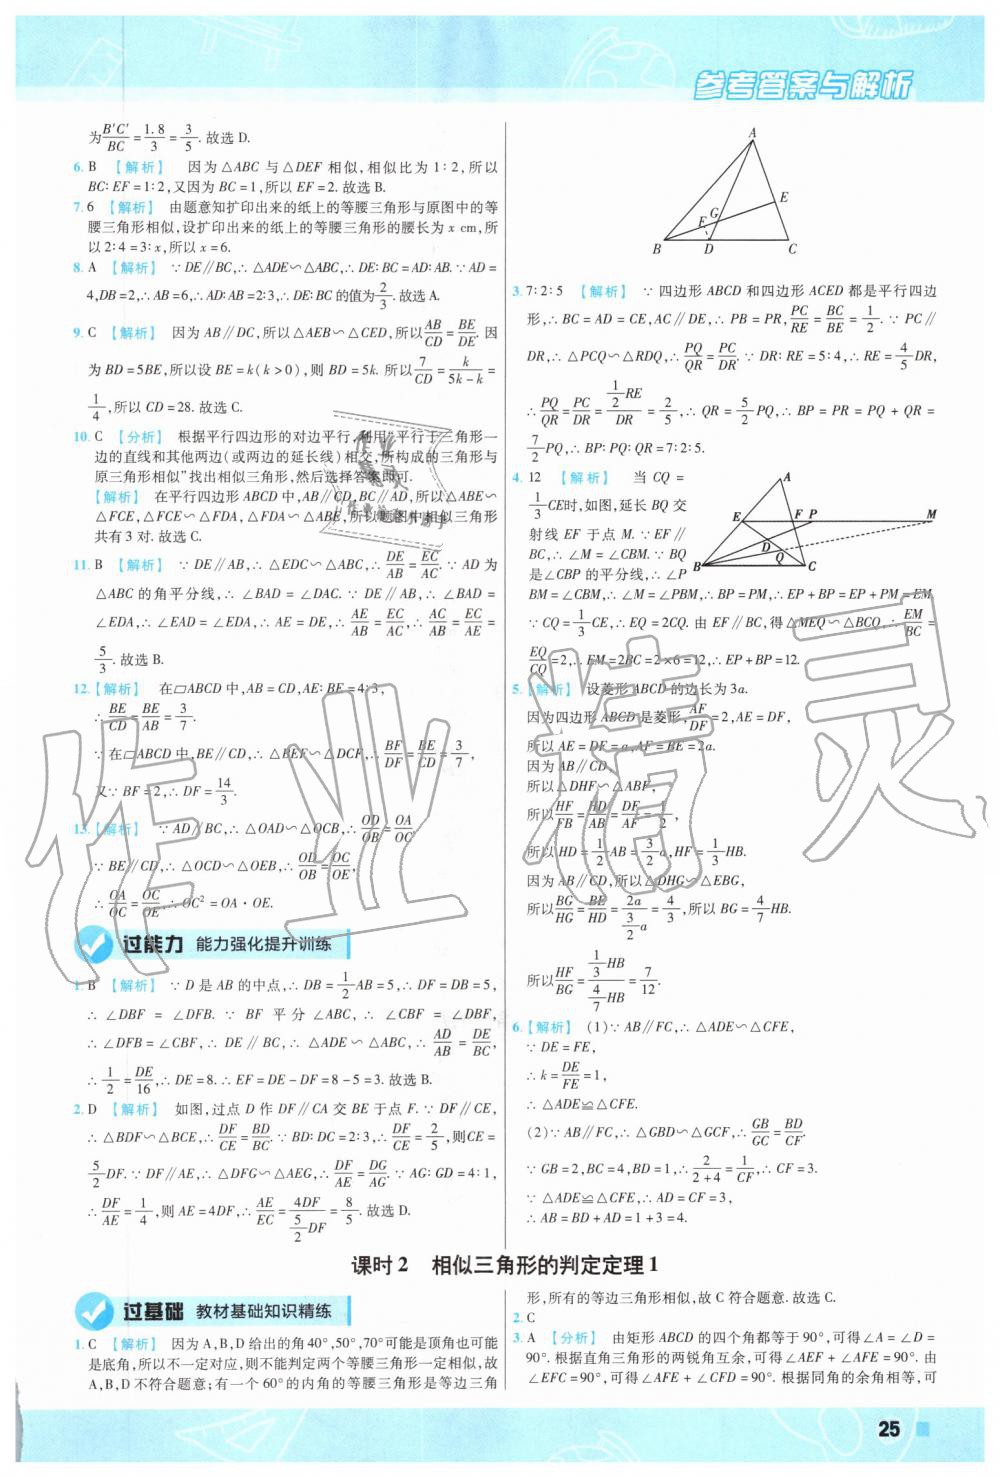 参考答案与解析
为B′C′/BC=1.8/3=3/5. 故选 D.
6. B 【解析】 因为△ABC 与△DEF 相似,相似比为 1∶2,所以
BC∶EF=1∶2,又因为 BC=1,所以 EF=2. 故选 B.
7. 6 【解析】 由题意知扩印出来的纸上的等腰三角形与原图中的等
腰三角形相似,设扩印出来的纸上的等腰三角形的腰长为 x cm,所
以 2∶4=3∶x,所以 x=6.
8. A 【解析】 ∵DE∥BC,∴△ADE∽△ABC,∴DE∶BC=AD∶AB. ∵AD=
4,DB=2,∴AB=6,∴AD∶AB=2∶3,∴DE∶BC 的值为2/3. 故选 A.
9. C 【解析】 因为 AB∥DC,所以△AEB∽△CED,所以AB/CD=BE/DE. 因
为 BD=5BE,所以设 BE=k(k>0),则 BD=5k. 所以7/CD=k/(5k-k)=
1/4,所以 CD=28. 故选 C.
10. C 【分析】 根据平行四边形的对边平行,利用“平行于三角形一
边的直线和其他两边(或两边的延长线)相交,所构成的三角形与
原三角形相似”找出相似三角形,然后选择答案即可.
【解析】 在平行四边形 ABCD 中,AB∥CD,BC∥AD,所以△ABE∽
△FCE,△FCE∽△FDA,△FDA∽△ABE,所以题图中相似三角形
共有 3 对. 故选 C.
11. B 【解析】 ∵DE∥AB,∴△EDC∽△ABC,∴DE/AB=EC/AC. ∵AD 为
△ABC 的角平分线,∴∠BAD=∠DAC. ∵DE∥AB,∴∠BAD=
∠EDA,∴∠EAD=∠EDA,∴AE=DE,∴AE/AB=EC/AC,∴AC/AB=EC/AE=
5/3. 故选 B.
12. 【解析】 在▱ABCD 中,AB=CD,AE∶BE=4∶3,
∴BE/CD=BE/AB=3/7.
∵在▱ABCD 中,BE∥CD,∴△BEF∽△DCF,∴BF/DF=BE/CD=3/7,
又∵BF=2,∴DF=14/3.
13. 【解析】 ∵AD∥BC,∴△OAD∽△OCB,∴OD/OB=OA/OC.
∵BE∥CD,∴△OCD∽△OEB,∴OD/OB=OC/OE,
∴OA/OC=OC/OE,∴OC²=OA·OE.
过能力 能力强化提升训练
1. B 【解析】 ∵D 是 AB 的中点,∴DB=1/2AB=5,∴DF=DB=5,
∴∠DBF=∠DFB. ∵BF 平分∠ABC,∴∠CBF=∠DBF,
∴∠DFB=∠CBF,∴DE∥BC,∴△ADE∽△ABC,∴AD/AB=DE/BC,
∴1/2=DE/16,∴DE=8. ∴EF=DE-DF=8-5=3. 故选 B.
2. D 【解析】 如图,过点 D 作 DF∥CA 交 BE 于点 F. ∵DF∥CE,
∴△BDF∽△BCE,∴DF/CE=BD/BC. ∵BD∶DC=2∶3,∴DF/CE=2/5,则CE=
5/2DF. ∵DF∥AE,∴△DFG∽△AEG,∴DF/AE=DG/AG. ∵AG∶GD=4∶1,
∴DF/AE=1/4,则 AE=4DF,∴AE/EC=4DF/(5/2DF)=8/5. 故选 D.
A
E
G
F
B D C
3. 7∶2∶5 【解析】 ∵四边形 ABCD 和四边形 ACED 都是平行四边
形,∴BC=AD=CE,AC∥DE,∴PB=PR,PC/RE=BC/BE=1/2. ∵PC∥
DR,∴△PCQ∽△RDQ,∴PQ/QR=PC/DR. ∵DR∶RE=5∶4,∴RE=4/5DR,
∴PQ/QR=PC/DR=(1/2RE)/DR=2/5,∴QR=5/2PQ,∴BP=PR=PQ+QR=
7/2PQ,∴BP∶PQ∶QR=7∶2∶5.
4. 12 【解析】 当 CQ=
1/3CE时,如图,延长 BQ 交
射线 EF 于点 M. ∵EF∥
BC,∴∠M=∠CBM. ∵BQ
是∠CBP 的平分线,∴∠P
A
E F P M
D
Q
B C
BM=∠CBM,∴∠M=∠PBM,∴BP=PM,∴EP+BP=EP+PM=EM.
∵CQ=1/3CE,∴EQ=2CQ. 由 EF∥BC,得△MEQ∽△BCQ,∴EM/BC=
EQ/CQ=2,∴EM=2BC=2×6=12,∴EP+BP=12.
5. 【解析】 设菱形 ABCD 的边长为 3a.
因为四边形 ABCD 是菱形,AF/DF=2,AE=DF,
所以 AE=DF=a,AF=BE=2a.
因为 AB∥CD,
所以△DHF∽△ABF,
所以HF/FB=HD/AB=DF/AF=1/2,
所以 HD=1/2AB=3/2a,HF=1/3HB.
因为 AB∥CD,所以△DHG∽△EBG,
所以BG/HG=BE/HD=2a/(3/2a)=4/3,所以 BG=4/7HB.
所以HF/BG=(1/3HB)/(4/7HB)=7/12.
6. 【解析】 (1)∵AB∥FC,∴△ADE∽△CFE,
∵DE=FE,
∴k=DE/FE=1,
∴△ADE≌△CFE.
(2)∵AB∥FC,∴△GBD∽△GCF,∴GB/GC=BD/CF.
∵GB=2,BC=4,BD=1,∴2/(2+4)=1/CF,∴CF=3.
∵△ADE≌△CFE,∴AD=CF=3,
∴AB=BD+AD=1+3=4.
课时 2 相似三角形的判定定理 1
过基础 教材基础知识精练
1. C 【解析】 因为 A,B,D 给出的角 40°,50°,70°可能是顶角也可能
是底角,所以不一定对应,则不能判定两个等腰三角形一定相似,故
A,B,D 不符合题意;有一个 60°的内角的等腰三角形是等边三角
形,所有的等边三角形相似,故 C 符合题意. 故选 C.
2. C
3. A 【分析】 由矩形 ABCD 的四个角都等于 90°,可得∠A=∠D=
90°. 根据直角三角形的两锐角互余,可得∠AEF+∠AFE=90°. 由
∠EFC=90°,可得∠AFE+∠CFD=90°. 根据同角的余角相等,可
25
作业精灵